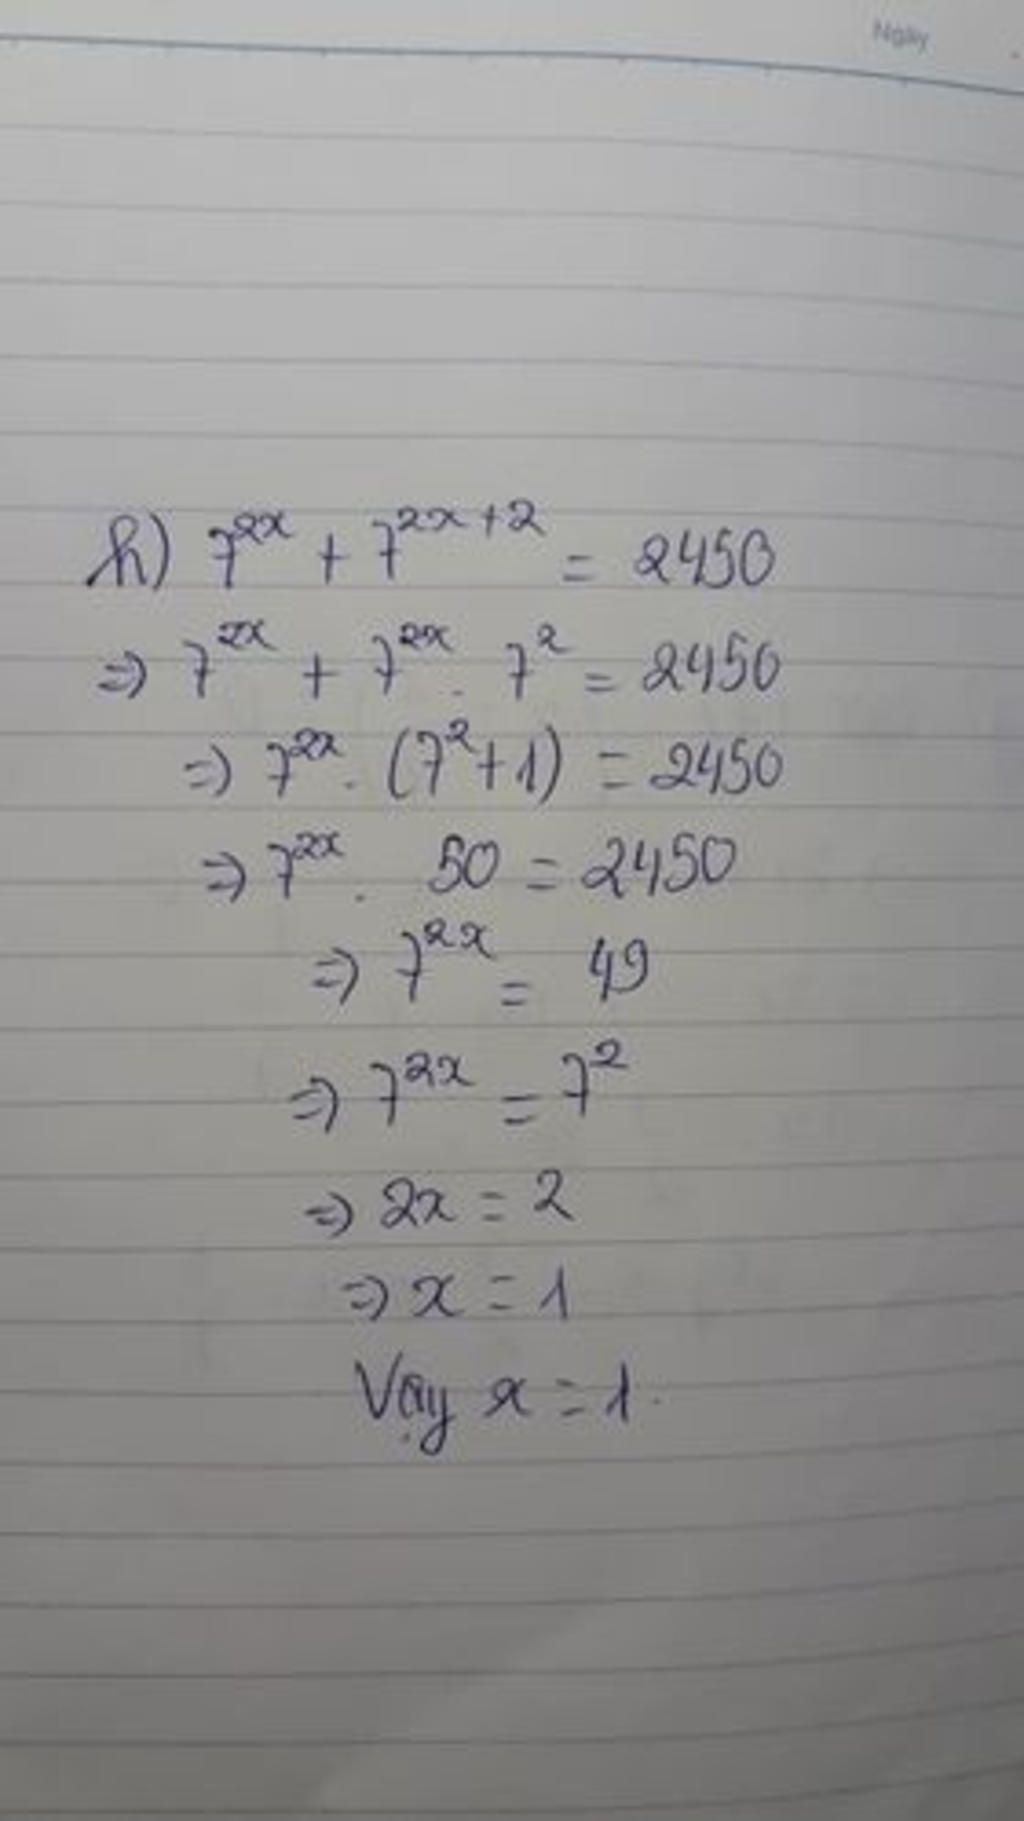 Ngày
h) 7^{2x} + 7^{2x+2} = 2450
=> 7^{2x} + 7^{2x} . 7^2 = 2450
=> 7^{2x} . (7^2+1) = 2450
=> 7^{2x} . 50 = 2450
=> 7^{2x} = 49
=> 7^{2x} = 7^2
=> 2x = 2
=> x = 1
Vậy x = 1.